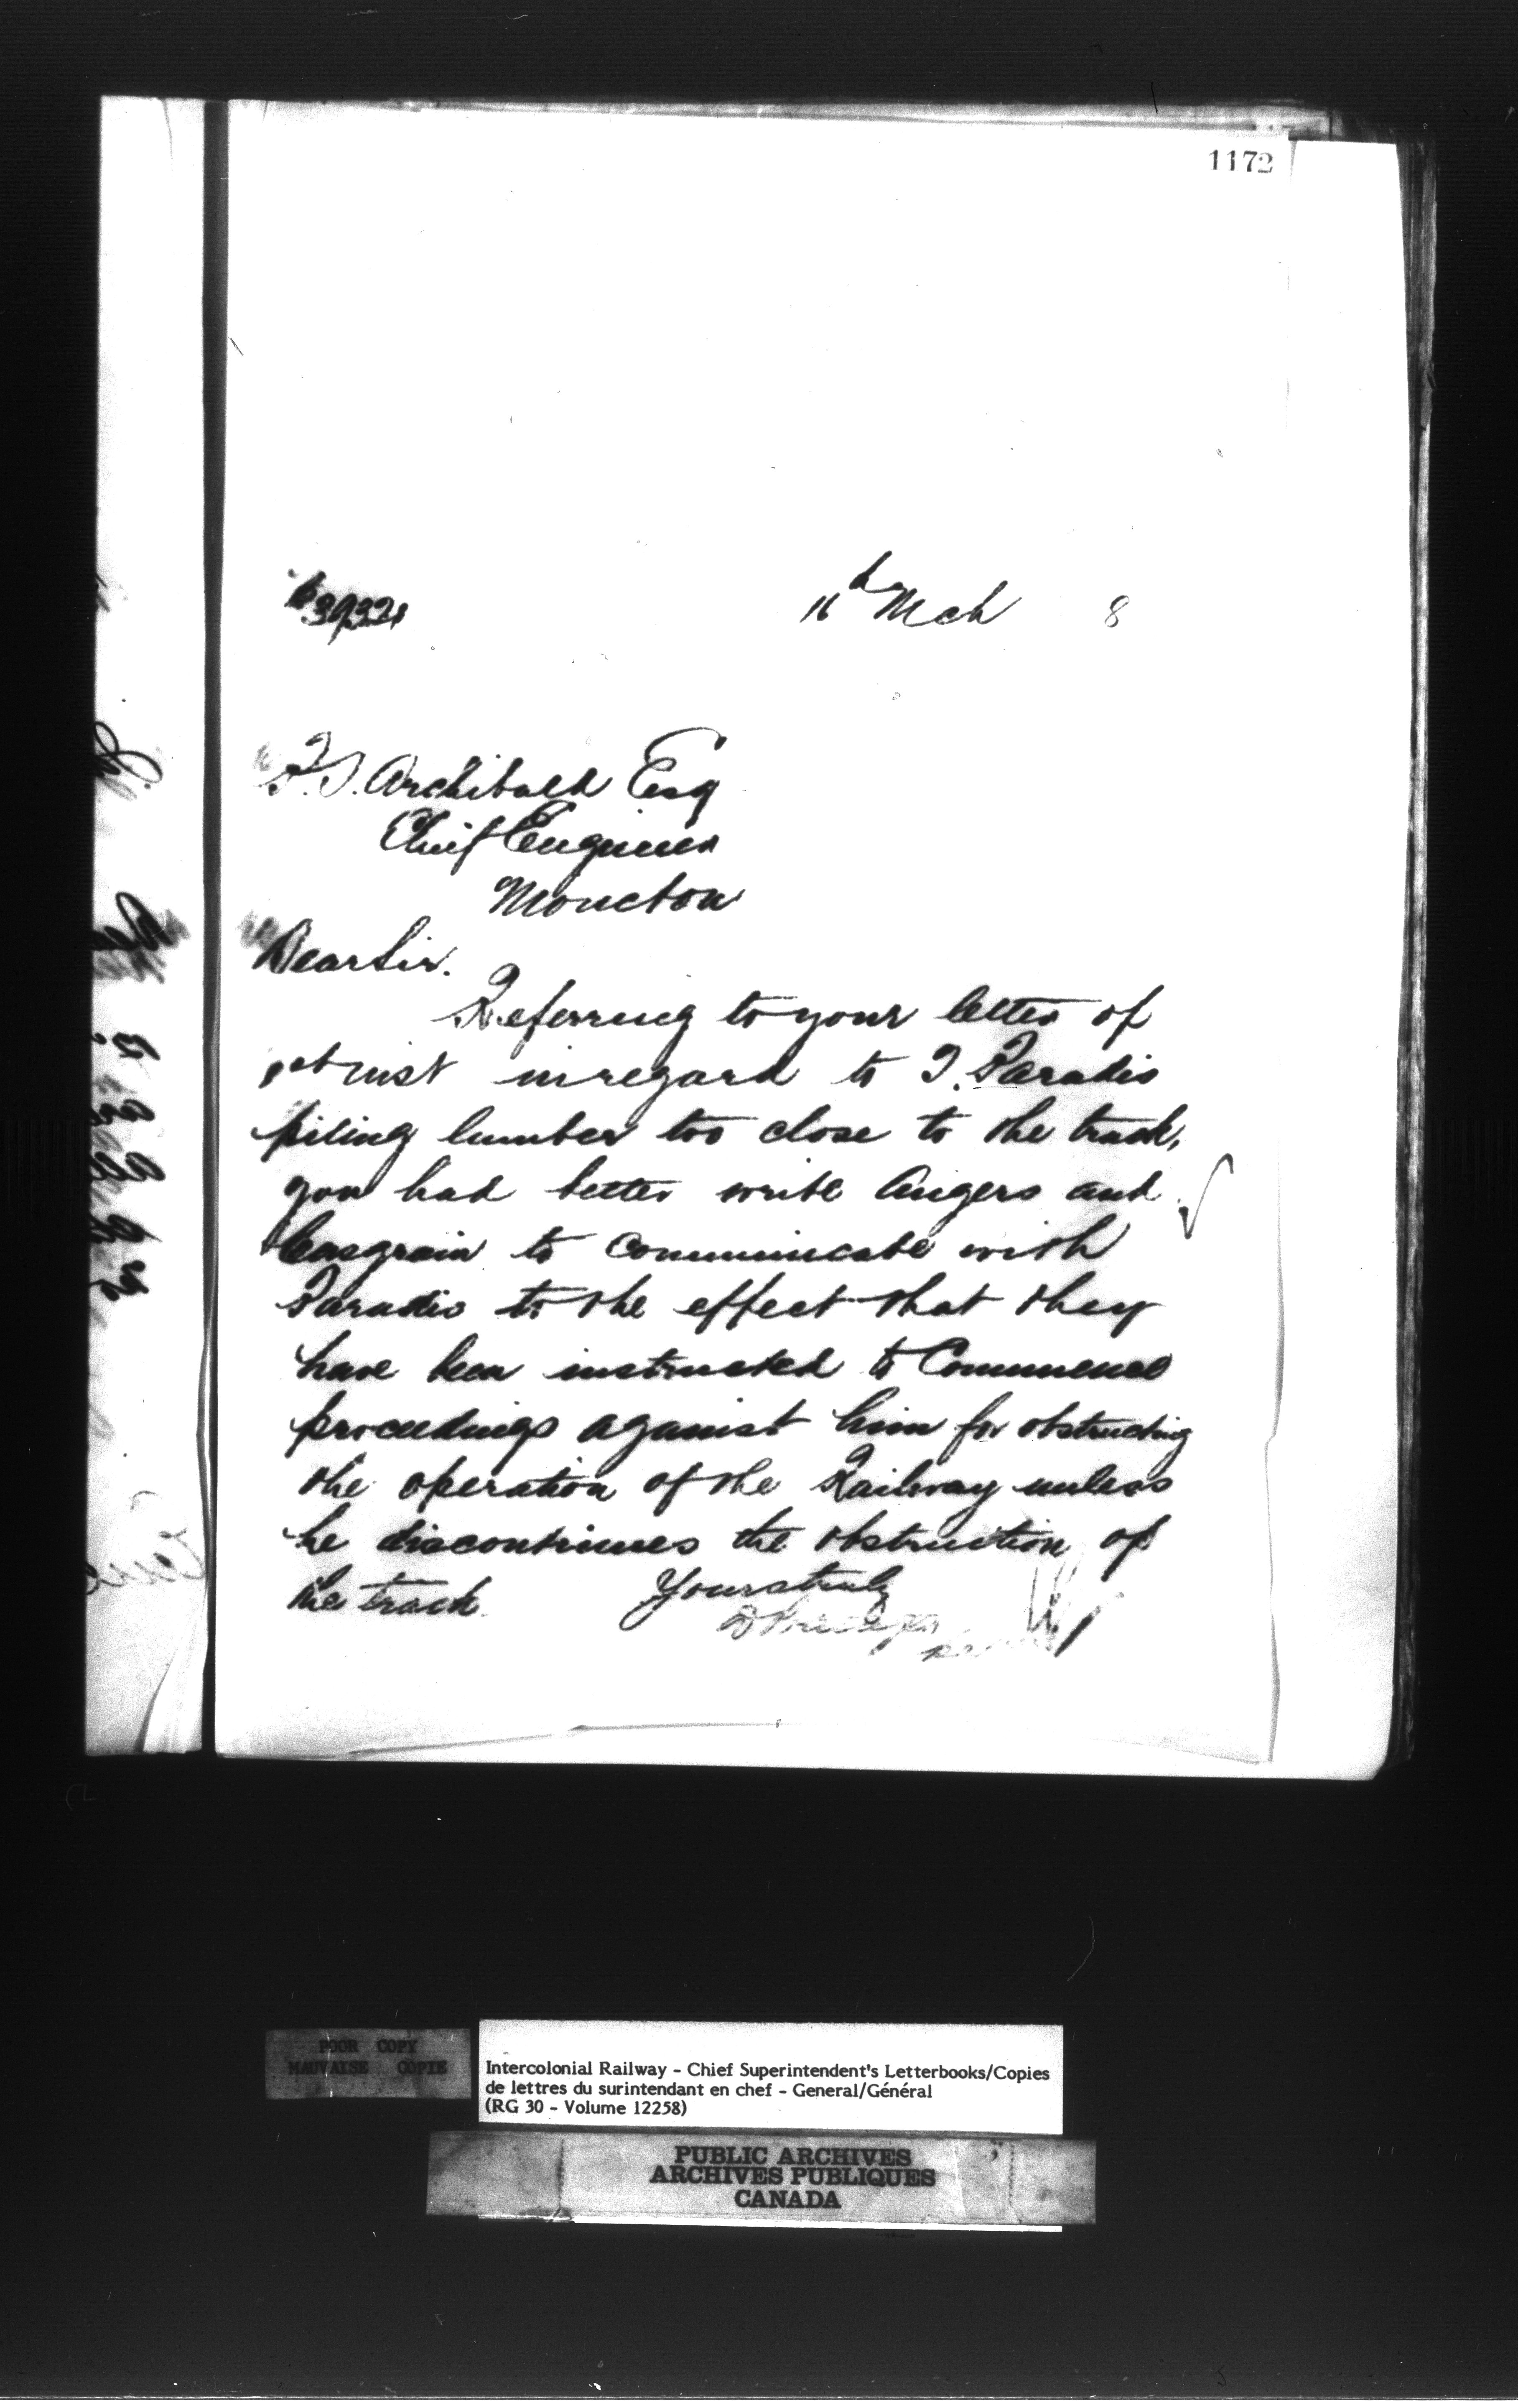 1172
39321
16th Mch 8
P.S. Archibald Esq
Chief Engineer
Moncton
Dear Sir.
Referring to your letter of
1st inst in regard to J. Paradis
piling lumber too close to the track,
you had better write Angers and
Casgrain to communicate with
Paradis to the effect that they
have been instructed to Commence
proceedings against him for obstructing
the operation of the Railway unless
he discontinues the obstruction of
the track.
Yours truly
D Pottinger
POOR COPY
MAUVAISE COPIE
Intercolonial Railway - Chief Superintendent's Letterbooks/Copies
de lettres du surintendant en chef - General/Général
(RG 30 - Volume 12258)
PUBLIC ARCHIVES
ARCHIVES PUBLIQUES
CANADA